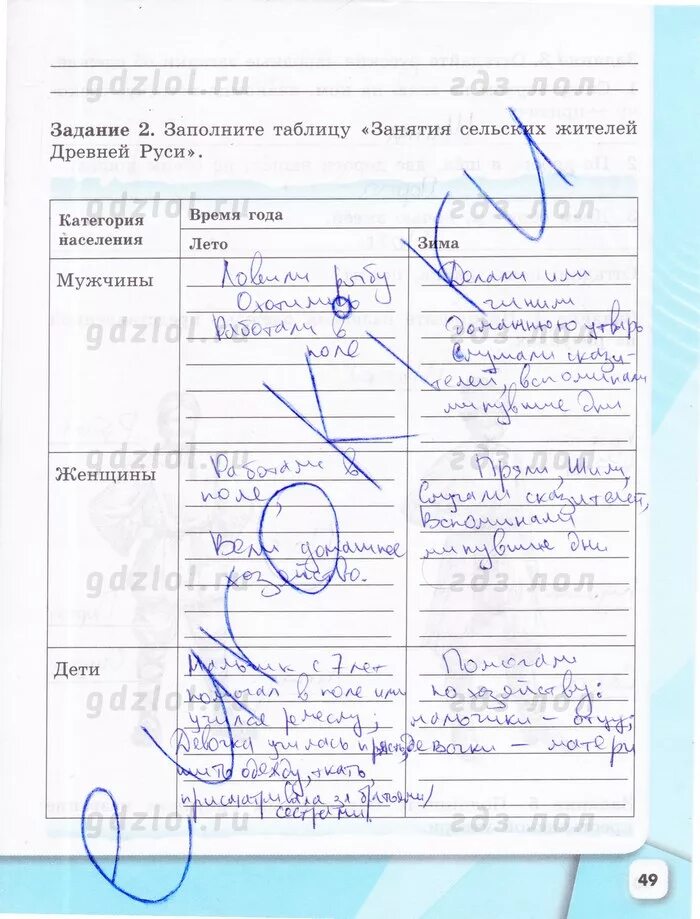 gdzlol.ru гдз лол
Задание 2. Заполните таблицу «Занятия сельских жителей
Древней Руси».
gdzlol.ru гдз лол
Категория населения
Время года
Лето
Зима
gdzlol.ru гдз лол
Мужчины
Ловили рыбу
Охотились
Работали в
поле
Делали или
чинили
домашнюю утварь
Слушали скази-
телей, вспоминали
минувшие дни
gdzlol.ru гдз лол
Женщины
Работали в
поле,
Вели домашнее
хозяйство.
Пряли, Шили,
Слушали сказителей,
Вспоминали
минувшие дни
gdzlol.ru гдз лол
Дети
Мальчик с 7 лет
помогал в поле или
учился ремеслу;
Девочка училась прясть,
шить одежду, ткать,
присматривала за братьями/
сестрами
Помогали
по хозяйству:
мальчики – отцу;
девочки – матери
gdzlol.ru гдз лол
gdzlol.ru гдз лол
euroki
49